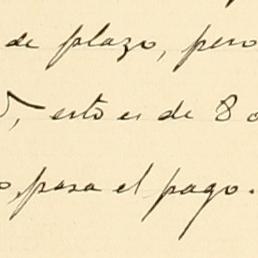 de plazo, pero
, esto es de 8
para el pago.